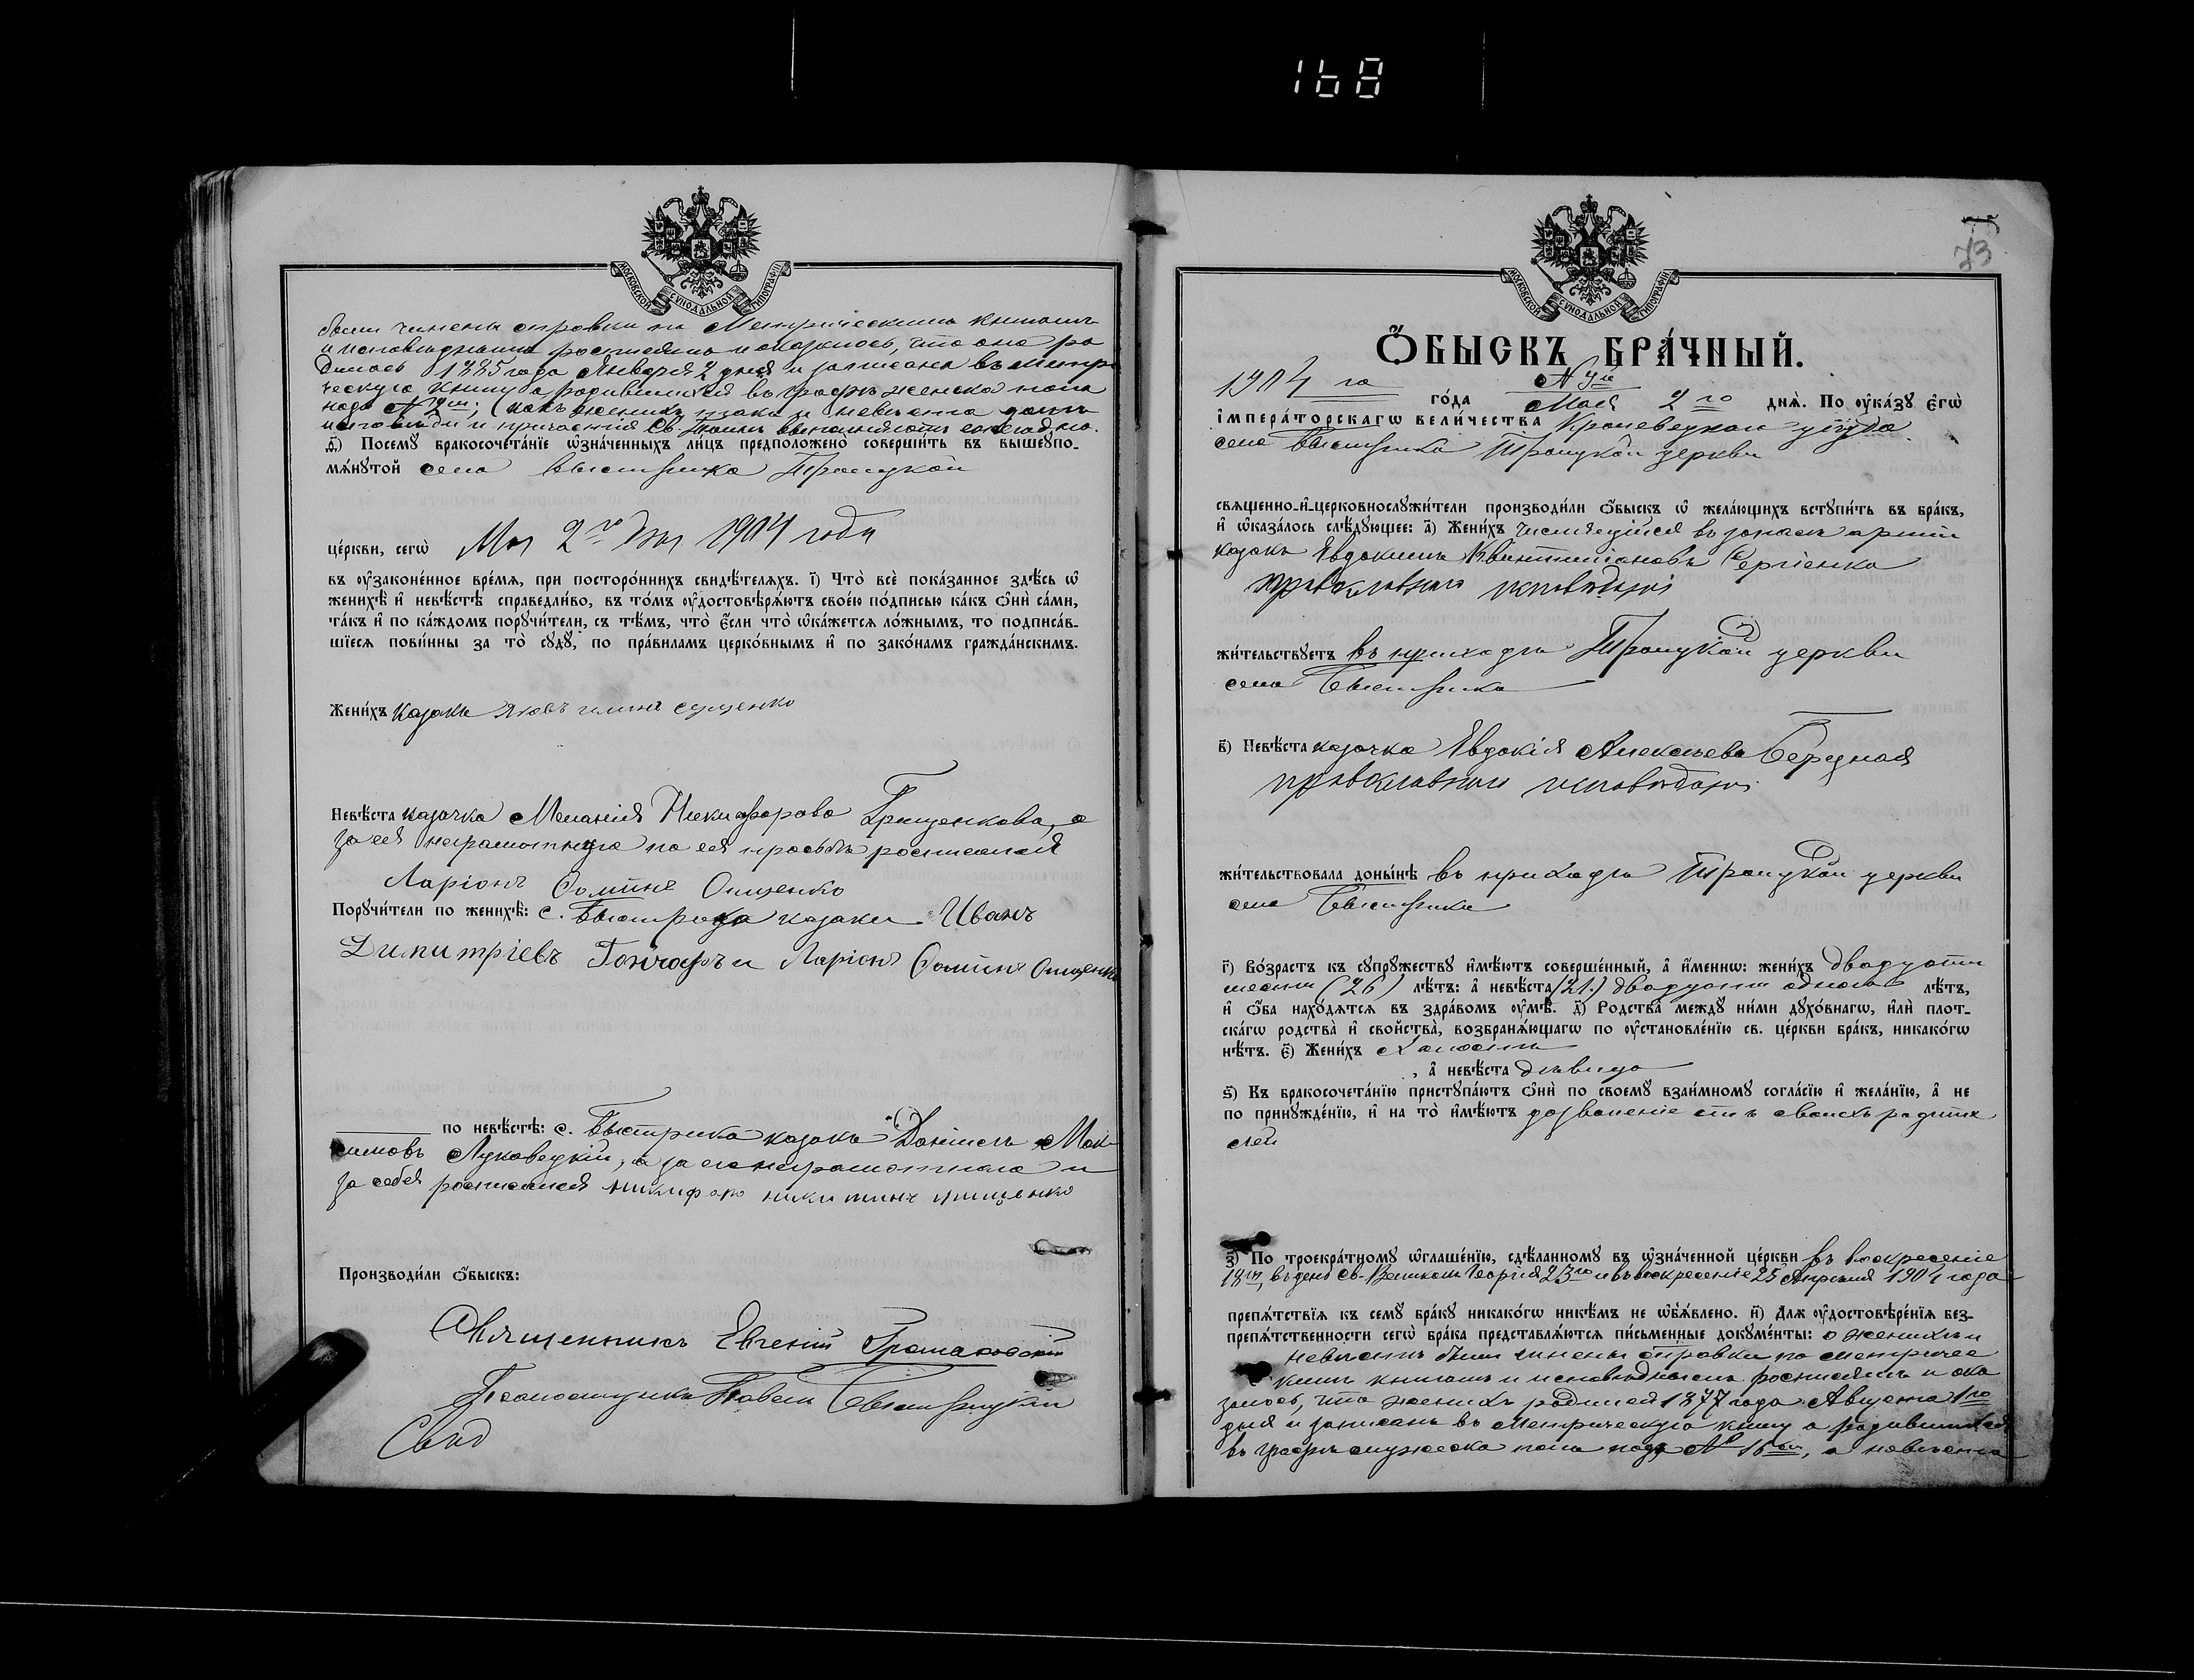 168
МОСКОВСКОЙ СѴНОДАЛЬНОЙ ТИПОГРАФІИ
были чинены справки по Метрическимъ книгамъ
и исповѣднымъ росписямъ и оказалось, что она ро
дилась 1885 года Января 2 дня и записана въ метри
ческую книгу о родившихся въ графѣ женска пола
подъ № 2мъ; (какъ женихъ такъ и невѣста долгъ
исповѣди и причастія Св. Таинъ выполняютъ ежегодно.
д҃) Посемꙋ бракосочета́нїе ѡ҆зна́ченныхъ ли́цъ предположено̀ соверши́ть въ вышеꙋпо-
мѧ́нꙋтой села Быстрика Троицкой
це́ркви, сегѡ̀ Мая 2го дня 1904 года
въ ᲂу҆законе́нное вре́мѧ, при посторо́ннихъ свидѣ́телѧхъ. і҃) Что̀ всѐ пока́занное здѣ́сь ѡ҆
женихѣ̀ и҆ невѣ́стѣ справедли́во, въ то́мъ ᲂу҆достовѣрѧ́ютъ свое́ю по́дписью ка́къ ѻ҆нѝ са́ми,
та́къ и҆ по ка́ждомъ порꙋчи́тели, съ тѣ́мъ, что̀ є҆́сли что̀ ѡ҆ка́жетсѧ ло́жнымъ, то подписа́в-
шїесѧ пови́нны за то̀ сꙋдꙋ̀, по пра́виламъ церко́внымъ и҆ по зако́намъ гражда́нскимъ.
Жени́хъ казакъ Яковъ сущенко
Невѣ́ста казачка Меланія Никифорова Грищенкова, а
за ея неграмотную по ея просьбѣ росписался
Ларіонъ Ѳоминъ Онищенко
Порꙋчи́тели по женихѣ̀: с. Быстрика казаки Иванъ
Димитріевъ Гончаръ и Ларіонъ Ѳоминъ Онищенко
по невѣ́стѣ: с. Быстрика казакъ Даніилъ Мак
симовъ Луковецкій, а за его неграмотнаго и
за себя росписался никифоръ никитинъ
Производи́ли ѻ҆́быскъ:
Священникъ Евгеній Громаковскій
Псаломщикъ Павелъ Быстрицкій
73
МОСКОВСКОЙ СѴНОДАЛЬНОЙ ТИПОГРАФІИ
Ѻ҆́БЫСКЪ БРА́ЧНЫЙ.
1904 го го́да Мая 2го днѧ̀. По ᲂу҆ка́зꙋ є҆гѡ̀
і҆мпера́торскагѡ вели́чества Кролевецкаго уѣзда
села Быстрика Троицкой церкви
свѧще́нно-и҆-церковнослꙋжи́тели производи́ли ѻ҆́быскъ ѡ҆ жела́ющихъ встꙋпи́ть въ бра́къ,
и҆ ѡ҆каза́лось слѣ́дꙋющее: а҃) Жени́хъ числящійся въ запасѣ арміи
казакъ Евдокимъ Квинтиліановъ Сергіенко
православнаго исповѣданія
жи́тельствꙋетъ въ приходѣ Троицкой церкви
села Быстрика
в҃) Невѣ́ста казачка Евдокія Алексѣева Бередная
православнаго исповѣданія
жи́тельствовала доны́нѣ въ приходѣ Троицкой церкви
села Быстрика
г҃) Во́зрастъ къ сꙋпрꙋ́жествꙋ и҆мѣ́ютъ соверше́нный, а҆ и҆́меннѡ: жени́хъ двадцати
шести (26) лѣ́тъ: а҆ невѣ́ста (21.) двадцати одного лѣ́тъ,
и҆ ѻ҆́ба нахо́дѧтсѧ въ здра́вомъ ᲂу҆мѣ̀. д҃) Родства̀ междꙋ ни́ми дꙋхо́внагѡ, и҆лѝ плот-
ска́гѡ родства̀ и҆ свойства̀, возбранѧ́ющагѡ по ᲂу҆становле́нїю св. це́ркви бра́къ, никако́гѡ
нѣ́тъ. є҃) Жени́хъ холостъ
, а҆ невѣ́ста дѣвица
ѕ҃) Къ бракосочета́нїю пристꙋпа́ютъ ѻ҆нѝ по своемꙋ̀ взаи́мномꙋ согла́сїю и҆ жела́нїю, а҆ не
по принꙋжде́нїю, и҆ на то̀ и҆мѣ́ютъ дозволеніе отъ своихъ родите
лей
з҃) По троекра́тномꙋ ѡ҆глаше́нїю, сдѣ́ланномꙋ въ ѡ҆зна́ченной це́ркви въ воскресеніе
18го, въ день Св. Великом. Георгія 23го и въ воскресеніе 25 Апрѣля 1904 года
препѧ́тствїѧ къ семꙋ̀ бра́кꙋ никако́гѡ никѣ́мъ не ѡ҆б̾ѧ́влено. и҃) Длѧ ᲂу҆достовѣре́нїѧ без-
препѧ́тственности сегѡ̀ бра́ка представлѧ́ютсѧ пи́сьменные докꙋме́нты: о женихѣ и
невѣстѣ были чинены справки по метричес
кимъ книгамъ и исповѣднымъ росписямъ и ока
залось, что женихъ родился 1877 года Августа 1го
дня и записанъ въ метрическую книгу о родившихся
въ графѣ мужеска пола подъ № 16мъ, а невѣста